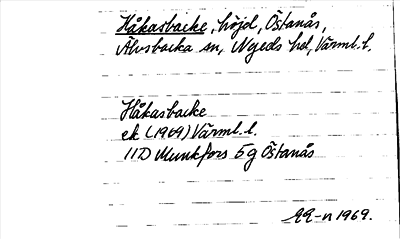 Håkasbacke, höjd, Östanås,
Älvsbacka sn, Nyeds hd, Värml. l.
Håkasbacke
ek (1969) Värml. l.
11D Munkfors 5g Östanås
1969.